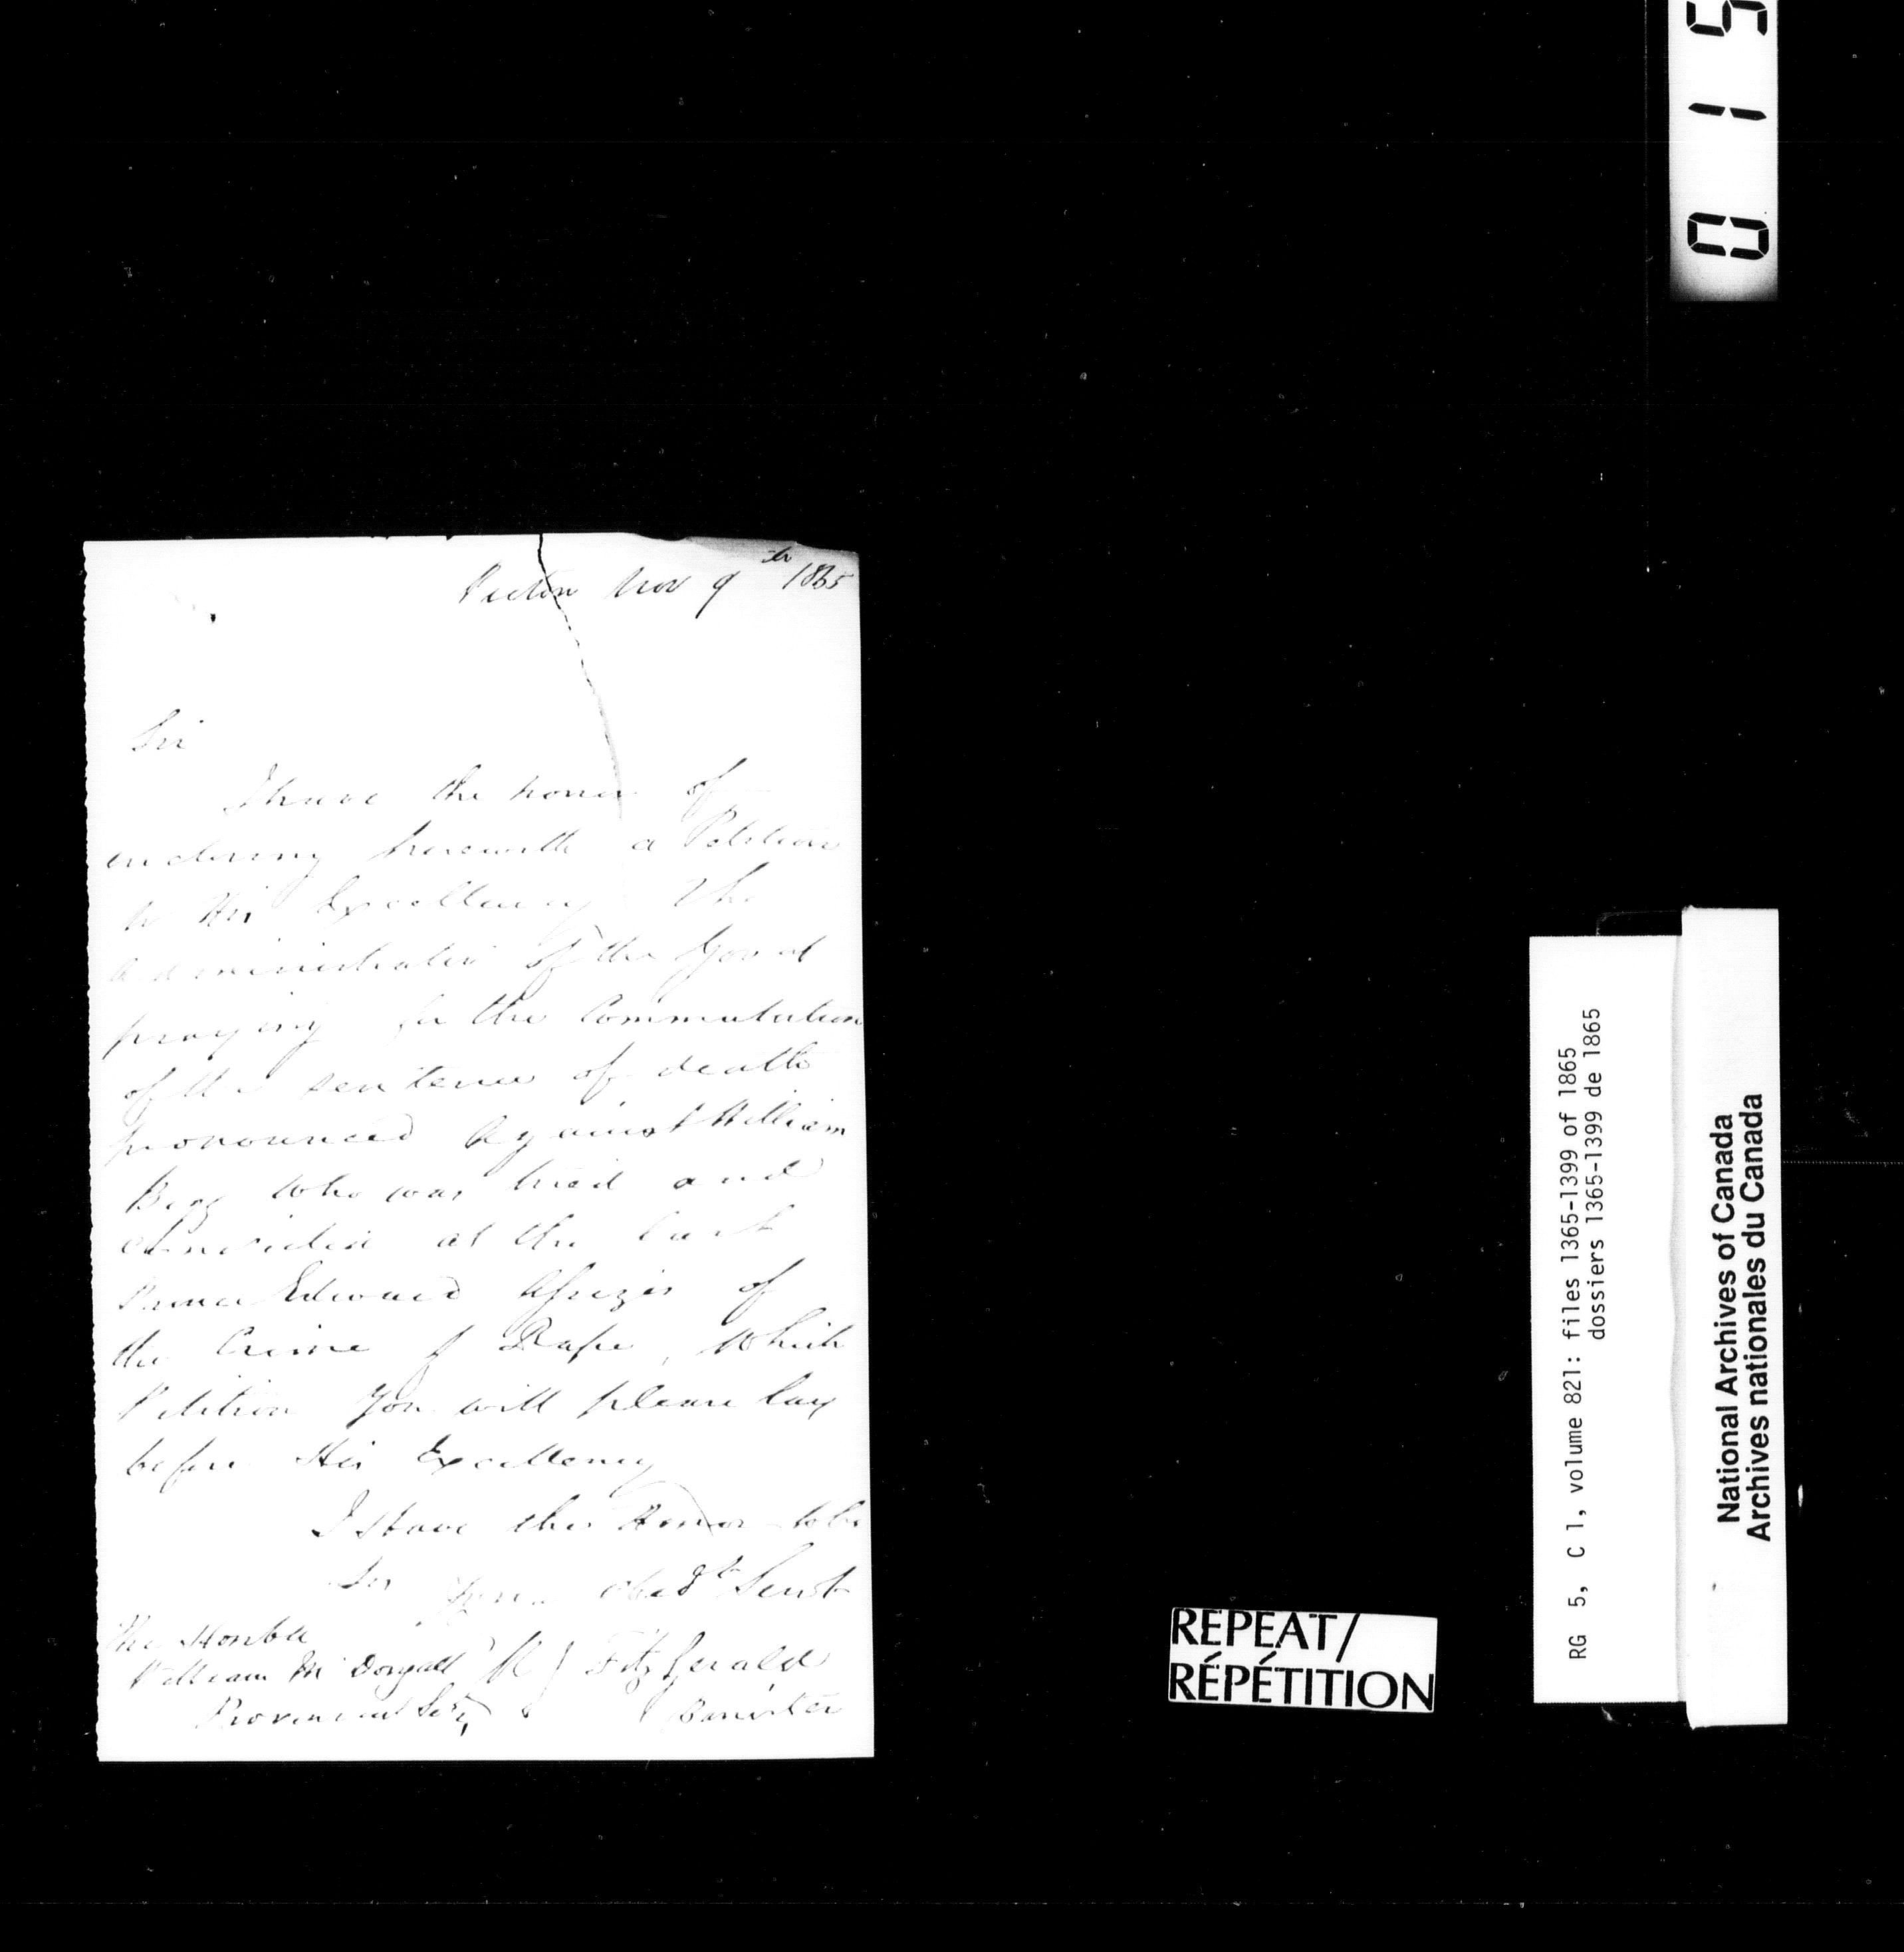 Picton Nov 9th 1865
Sir
I have the honor of
enclosing herewith a Petition
to His Excellency The
Administrator of the Govmt
praying for the Commutation
of the sentence of death
pronounced against William
who was tried and
Convicted at the last
Prince Edward Assizes of
the Crime of Rape, which
Petition you will please lay
before His Excellency
I Have the Honor to be
Sir Your Obedt Servt
The Honble
William McDougall
Provincial Secy
FitzGerald
Barrister
0 1 5
REPEAT/
RÉPÉTITION
RG 5, C 1, volume 821: files 1365-1399 of 1865
dossiers 1365-1399 de 1865
National Archives of Canada
Archives nationales du Canada